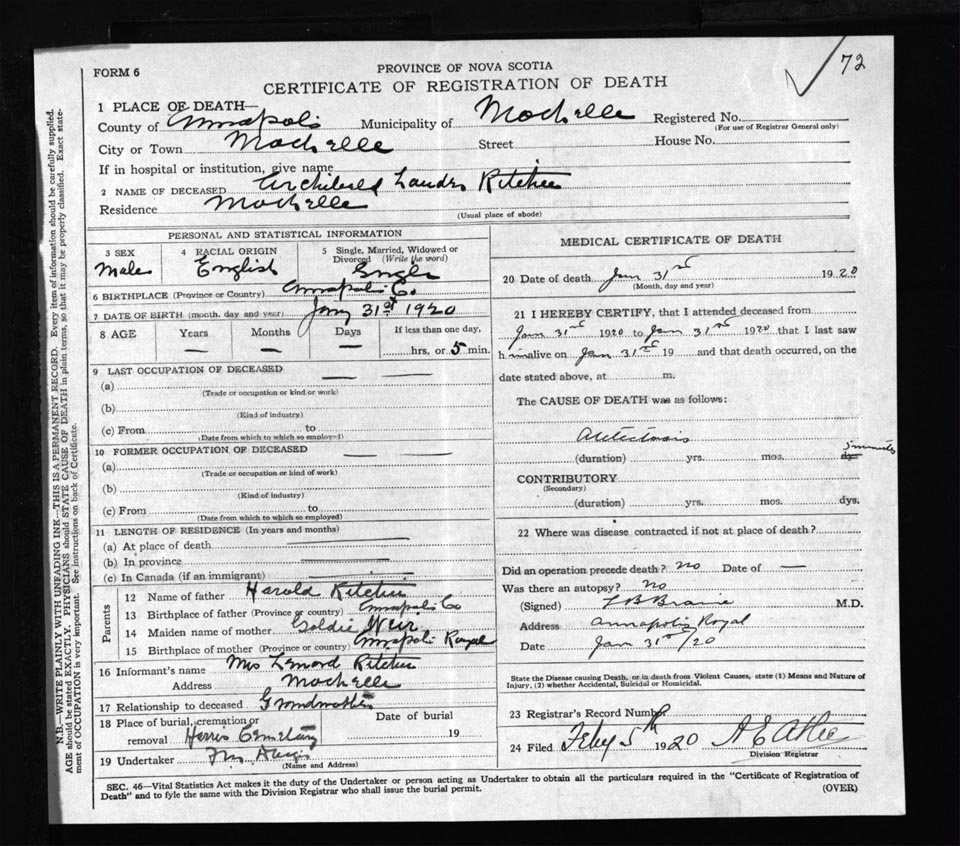 72
FORM 6
PROVINCE OF NOVA SCOTIA
CERTIFICATE OF REGISTRATION OF DEATH
1 PLACE OF DEATH—
County of Annapolis Municipality of Mochelle Registered No.
(For use of Registrar General only)
City or Town Mochelle Street House No.
If in hospital or institution, give name
2 NAME OF DECEASED Archibald Lauder Ritchie
Residence Mochelle
(Usual place of abode)
PERSONAL AND STATISTICAL INFORMATION
3 SEX 4 RACIAL ORIGIN 5 Single, Married, Widowed or
Divorced (Write the word)
Male English Single
6 BIRTHPLACE (Province or Country) Annapolis Co.
7 DATE OF BIRTH (month, day and year) Jany 31st 1920
8 AGE Years Months Days If less than one day,
— — — hrs, or 5 min.
9 LAST OCCUPATION OF DECEASED
(a)
(Trade or occupation or kind or work)
(b)
(Kind of industry)
(c) From to
(Date from which to which so employed)
10 FORMER OCCUPATION OF DECEASED
(a)
(Trade or occupation or kind of work)
(b)
(Kind of industry)
(c) From to
(Date from which to which so employed)
11 LENGTH OF RESIDENCE (in Years and months)
(a) At place of death
(b) In province
(c) In Canada (if an immigrant)
Parents
12 Name of father Harold Ritchie
13 Birthplace of father (Province or country) Annapolis Co
14 Maiden name of mother Goldie Weir
15 Birthplace of mother (Province or country) Annapolis Royal
16 Informant's name Mrs Lenord Ritchie
Address Mochelle
17 Relationship to deceased Grandmother
18 Place of burial, cremation or Date of burial
removal Harris Cemetary 19
19 Undertaker
(Name and Address)
MEDICAL CERTIFICATE OF DEATH
20 Date of death Jan 31st 1920
(Month, day and year)
21 I HEREBY CERTIFY, that I attended deceased from
Jan 31st 1920 to Jan 31st 1920 that I last saw
him alive on Jan 31st 19 and that death occurred, on the
date stated above, at m.
The CAUSE OF DEATH was as follows:
(duration) yrs. mos. dys. 5 minutes
CONTRIBUTORY
(Secondary)
(duration) yrs. mos. dys.
22 Where was disease contracted if not at place of death?
Did an operation precede death? No Date of —
Was there an autopsy? No
(Signed) M.D.
Address Annapolis Royal
Date Jan 31st/20
State the Disease causing Death, or in death from Violent Causes, state (1) Means and Nature of
Injury, (2) whether Accidental, Suicidal or Homicidal.
23 Registrar's Record Number
24 Filed Feby 5th 1920
Division Registrar
SEC. 46—Vital Statistics Act makes it the duty of the Undertaker or person acting as Undertaker to obtain all the particulars required in the "Certificate of Registration of
Death" and to fyle the same with the Division Registrar who shall issue the burial permit.
(OVER)
N.B.—WRITE PLAINLY WITH UNFADING INK—THIS IS A PERMANENT RECORD. Every item of information should be carefully supplied.
AGE should be stated EXACTLY. PHYSICIANS should STATE CAUSE OF DEATH in plain terms, so that it may be properly classified. Exact state-
ment of OCCUPATION is very important. See instructions on back of Certificate.